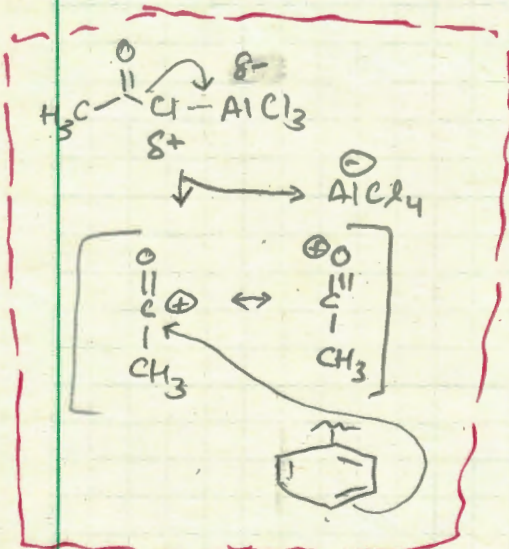 O δ-
H3C C Cl AlCl3
δ+
⊖
AlCl4
O ⊕O
C ⊕ ↔ C
CH3 CH3